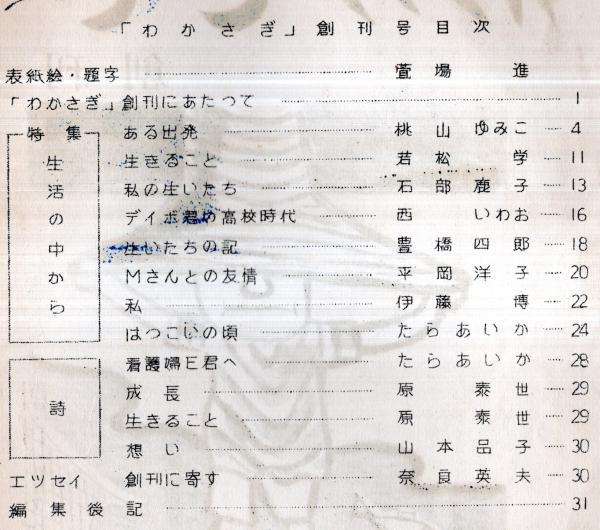 「わかさぎ」創刊号目次
表紙絵・題字 萱場 進
「わかさぎ」創刊にあたつて 1
特集 生活の中から
ある出発 桃山 ゆみこ 4
生きること 若松 学 11
私の生いたち 石部鹿子 13
デイボ君の高校時代 西 いわお 16
生いたちの記 豊橋四郎 18
Mさんとの友情 平岡洋子 20
私 伊藤 博 22
はつこいの頃 たらあいか 24
詩
看護婦E君へ たらあいか 28
成長 原 泰世 29
生きること 原 泰世 29
想い 山本品子 30
エツセイ 創刊に寄す 奈良英夫 30
編集後記 31